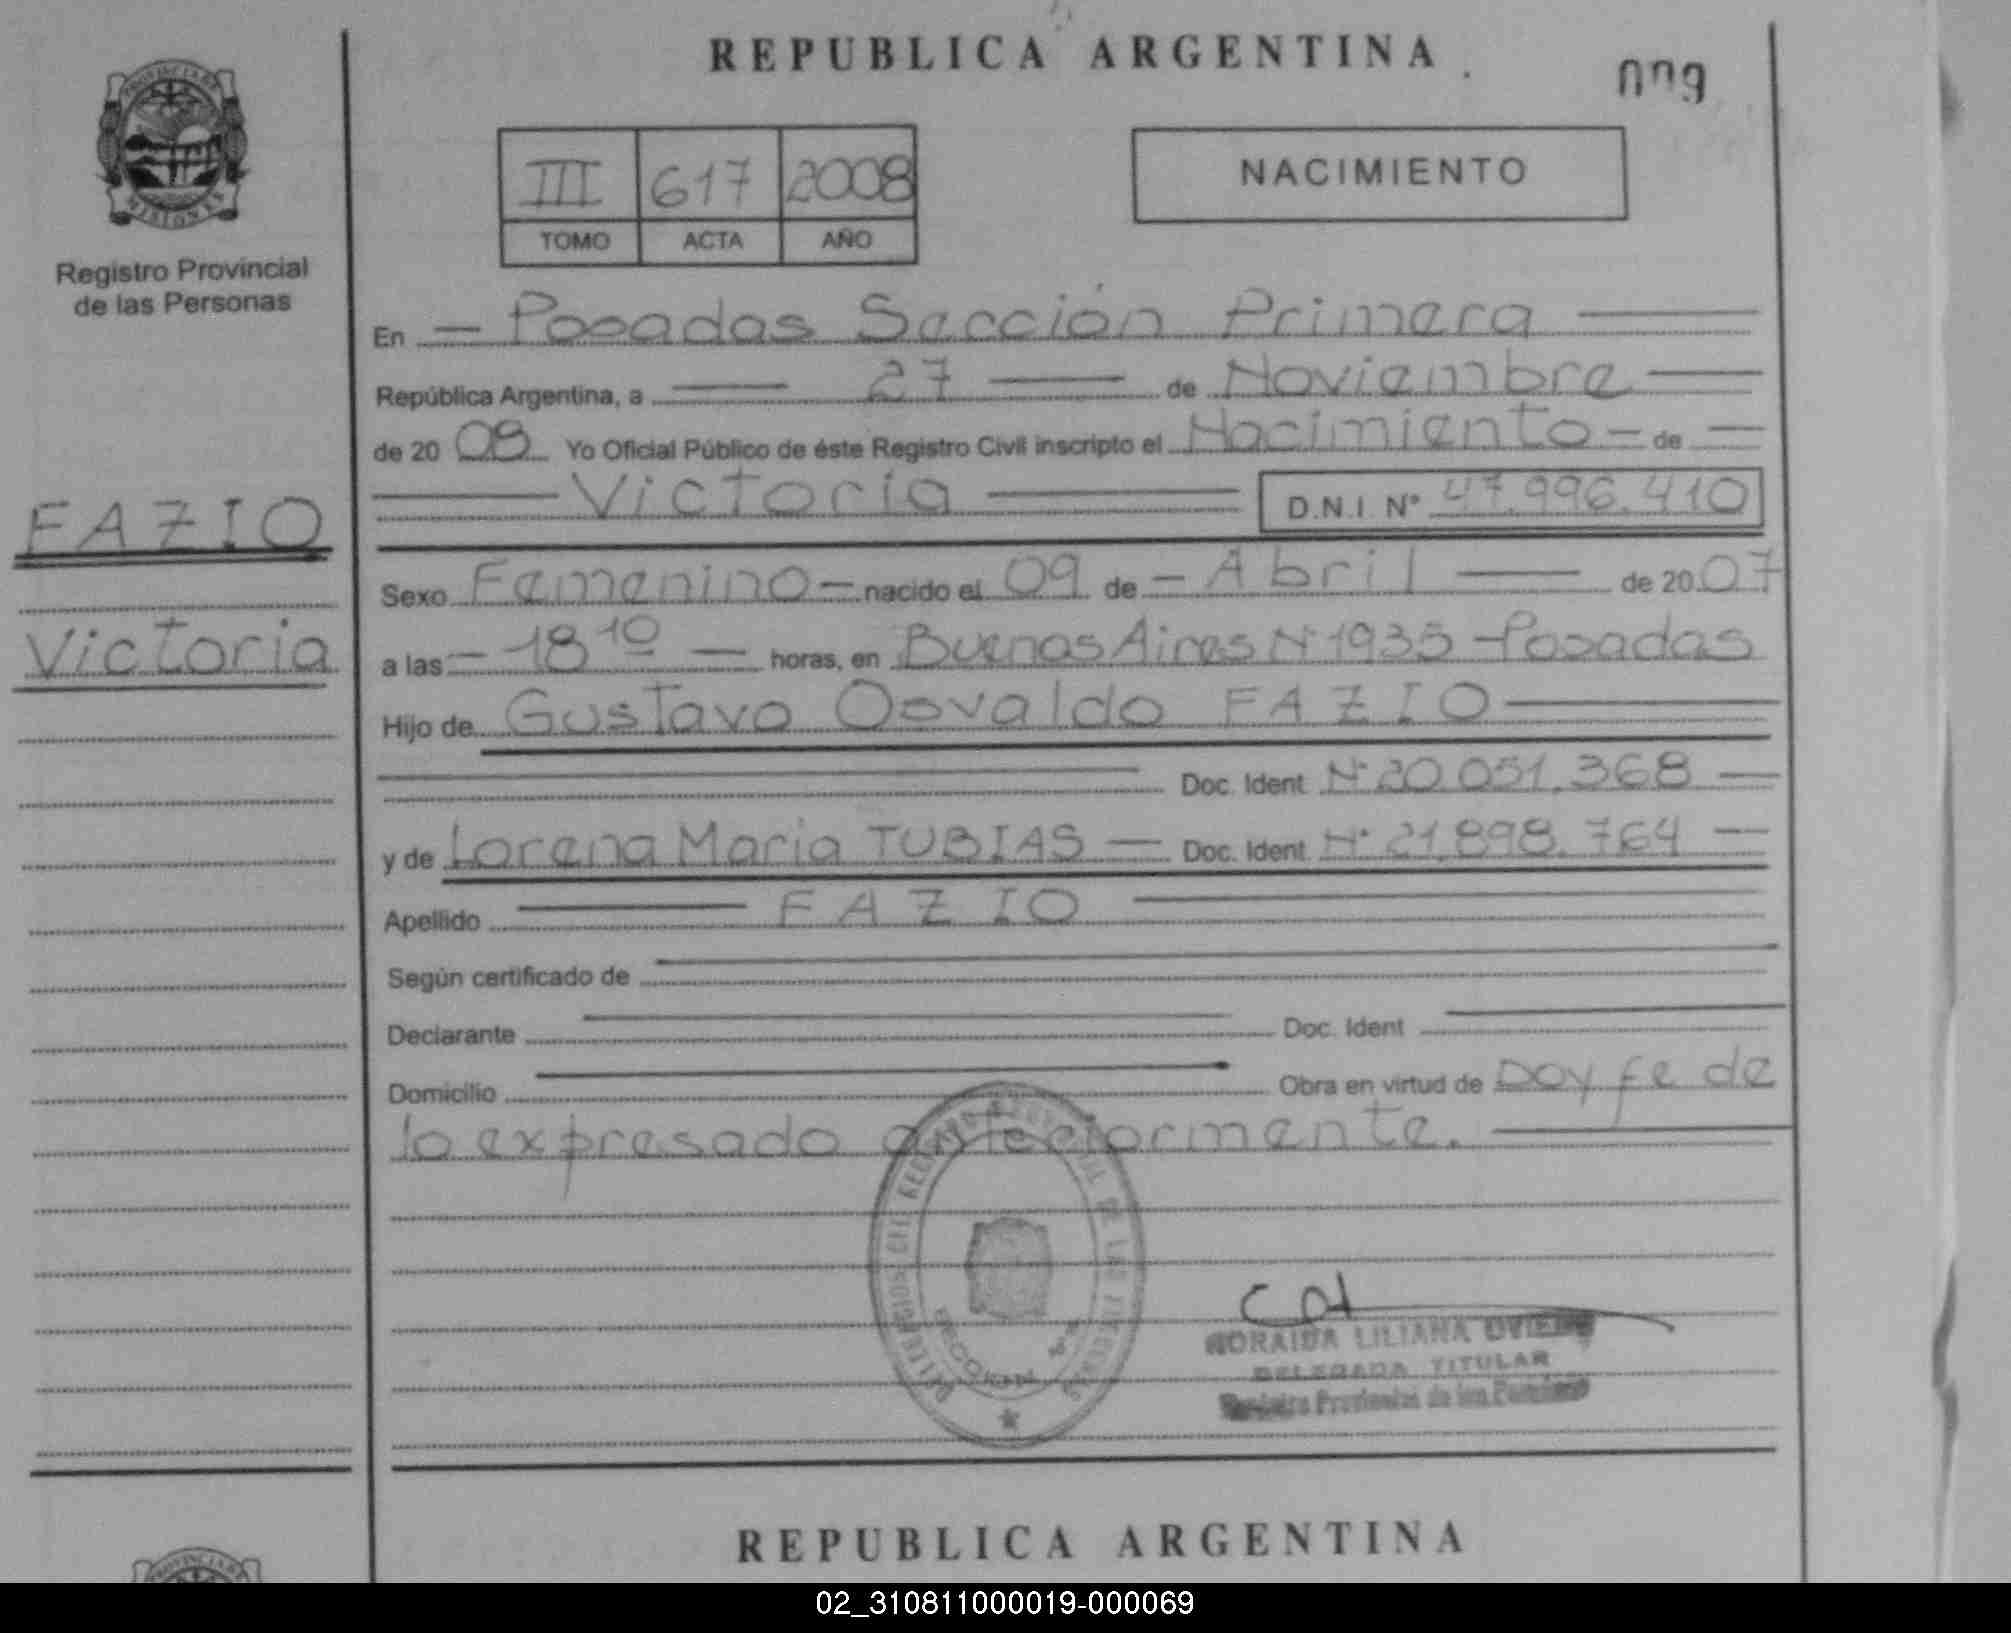 REPUBLICA ARGENTINA
009
PROVINCIA DE
MISIONES
Registro Provincial
de las Personas
III 617 2008
TOMO ACTA AÑO
NACIMIENTO
En Posadas Sección Primera
República Argentina, a 27 de Noviembre
de 20 08 Yo Oficial Público de éste Registro Civil inscripto el Nacimiento de
Victoria D.N.I. Nº 47.996.410
FAZIO
Victoria
Sexo Femenino nacido el 09 de Abril de 20 07
a las 18 10 horas, en Buenos Aires Nº 1935 - Posadas
Hijo de Gustavo Osvaldo FAZIO
Doc. Ident Nº 20.051.368
y de Lorena Maria TUBIAS Doc. Ident Nº 21.898.764
Apellido FAZIO
Según certificado de
Declarante Doc. Ident
Domicilio Obra en virtud de Doy fe de
lo expresado anteriormente.
REGISTRO PROVINCIAL DE LAS PERSONAS
SECCION 1ra
LILIANA OVIEDO
DELEGADA TITULAR
Registro Provincial de las Personas
REPUBLICA ARGENTINA
PROVINCIA DE
02_310811000019-000069